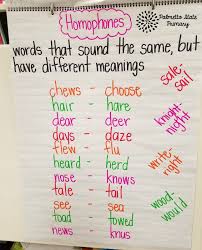 Homophones
Palmetto State
Primary
words that sound the same, but
have different meanings
chews - choose
hair - hare
dear - deer
days - daze
flew - flu
heard - herd
nose - knows
tale - tail
see - sea
toad - towed
news - knus
sale-
sail
knight-
night
write-
right
wood-
would